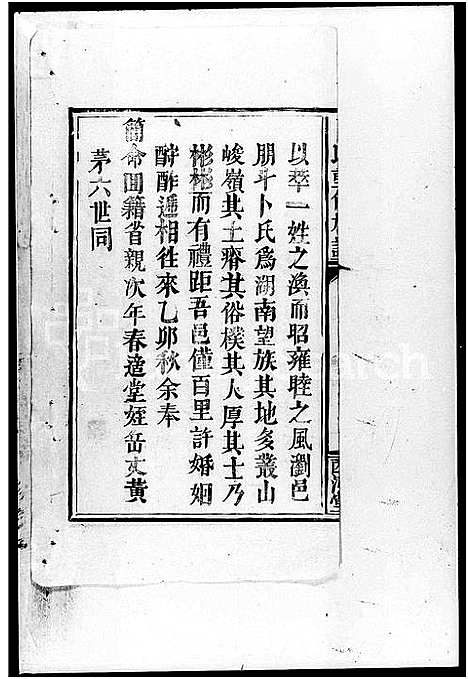 以萃一姓之渙而昭雍睦之風瀏邑
朋斗卜氏為湖南望族其地多叢山
峻嶺其土瘠其俗樸其人厚其士乃
彬彬而有禮距吾邑僅百里許婚姻
酧酢遞相徃來乙卯秋余奉
簡命囬籍省親次年春適堂姪岳丈黃
茅六世同
西河堂